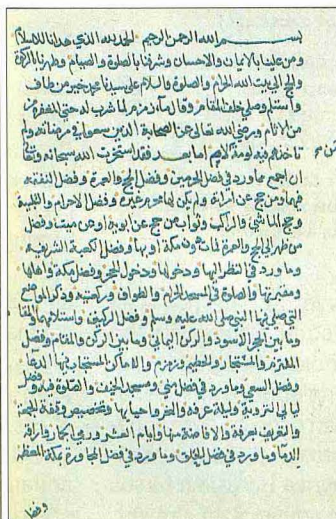 بسم الله الرحمن الرحيم الحمد لله الذي هدانا للاسلام
ومن علينا بالامان والاحسان وشرفنا بالصلوة والصيام وطهرنا بالزكوة
والحج الى بيت الله الحرام والصلوة والسلام على سيدنا محمد خير من طاف
واستلم وصلى خلف المقام وقال ماء زمزم لما شرب له حتى المغفرة من
من الاثام ورضي الله تعالى عن الصحابة الذين سعوا في مرضاته ولم
تاخذهم فيه لومة لائم اما بعد فقد استخرت الله سبحانه وتعالى
ان اجمع ما ورد في فضل الحرمين وفضل الحج والعمرة وفضل النفقة
فيهما ومن حج عن امراة ولم يكن لها محرم غيره وفضل الاحرام والتلبية
وحج الماشي والراكب وثواب من حج عن ابويه او عن ميت وفضل
من طهر الى الحج والعمرة فمات ومكة او بها وفضل الكعبة الشريفة
وما ورد في النظر اليها ودخولها ودخول الحجر وفضل مكة واهلها
ومقبرتها والصلوة في المسجد الحرام والطواف وركعتيه وذكر المواضع
التي صلى فيها النبي صلى الله عليه وسلم وفضل الركنين واستلامهما
وما بين الحجر الاسود والركن اليماني وما بين الركن والمقام وفضل
الملتزم والمستجار والحطيم وزمزم والاماكن المستجاب فيها الدعا
وفضل السعي وما ورد في فضل منى ومسجد الخيف والصلوة فيه وفضل
ليالي التروية وليلة عرفة والنحر واحيائها وتخصيص وقفة الجمعة
والتعريف بعرفة والافاضة منها وايام العشر ورمي الجمار واراقة
الدما وما ورد في فضل الحلق وما ورد في فضل المجاورة بمكة المعظمة